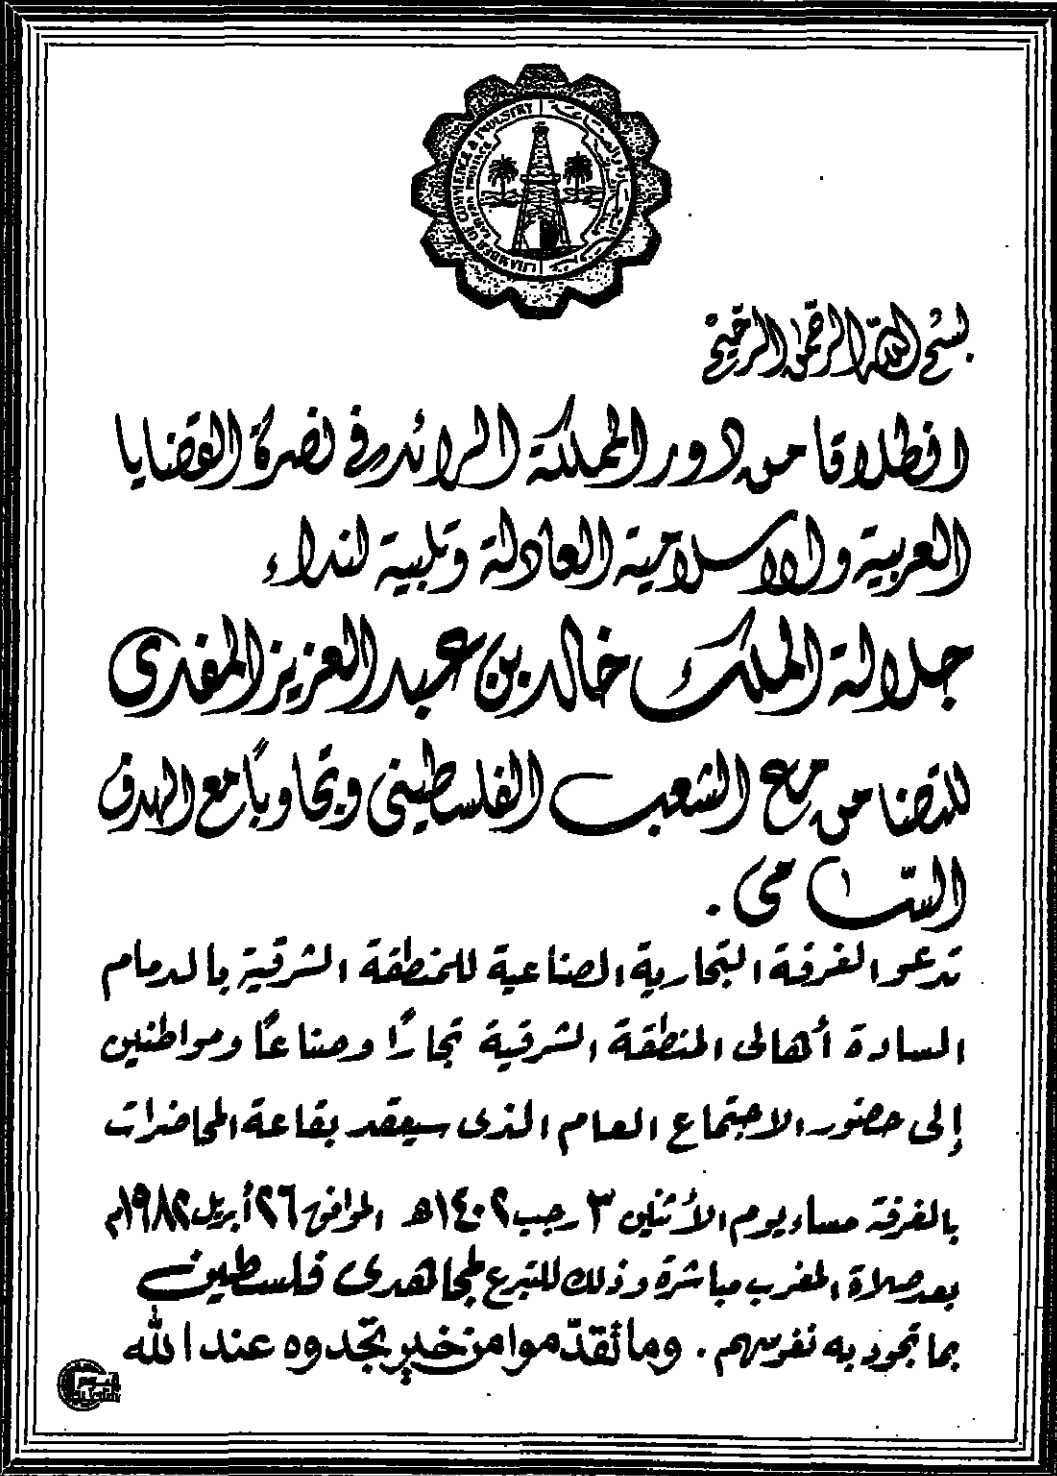 CHAMBER OF COMMERCE & INDUSTRY
بسم الله الرحمن الرحيم
انطلاقا من دور المملكة الرائد في نصرة القضايا
العربية والاسلامية العادلة وتلبية لنداء
جلالة الملك خالد بن عبد العزيز المفدى
للتضامن مع الشعب الفلسطيني وتجاوباً مع الهدف
السّامي .
تدعو الغرفة التجارية الصناعية للمنطقة الشرقية بالدمام
السادة أهالى المنطقة الشرقية تجارًا وصناعًا ومواطنين
إلى حضور الاجتماع العام الذى سيعقد بقاعة المحاضرات
بالغرفة مساء يوم الأثنين ٣ رجب ١٤٠٢هـ الموافق ٢٦ أبريل ١٩٨٢م
بعد صلاة المغرب مباشرة وذلك للتبرع لمجاهدى فلسطين
بما تجود به نفوسهم . وما تُقدّموا من خير تجّدوه عند الله